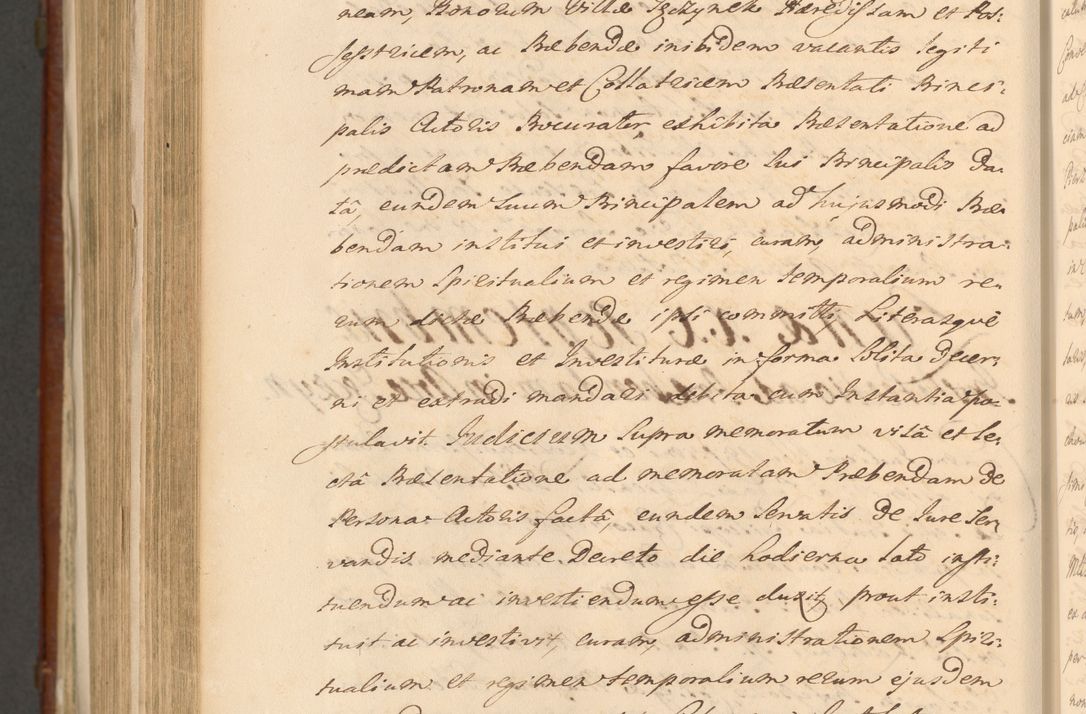 neam, Bonorum Villæ Szczynek Hæredissam et Pos:
sestricem, ac Præbendæ inibidem vacantis legiti
mam Patronam et Collatricem Præsentati Princi:
palis Actoris Procurator, exhibita Præsentatione ad
prædictam Præbendam favore sui Principalis Da:
tâ, eundem Suum Principalem ad hujusmodi Præ:
bendam institui et investiri, curam, administra:
tionem Spiritualium et regimen temporalium re:
rum dictæ Præbendæ ipsi committi, Literasquè
Institutionis et Investituræ in forma Solita decer:
ni et extradi mandari debita cum Instantia po:
stulavit. Judicium Supra memoratum visâ et le:
ctâ Præsentatione ad memoratam Præbendam de
Persona Actoris factâ, eundem Servatis de Jure Ser:
vandis mediante Decreto die hodierna lato insti:
tuendum ac investiendum esse duxit, prout insti:
tuit ac investivit, curam, administrationem Spiri:
tualium et regimen temporalium rerum ejusdem